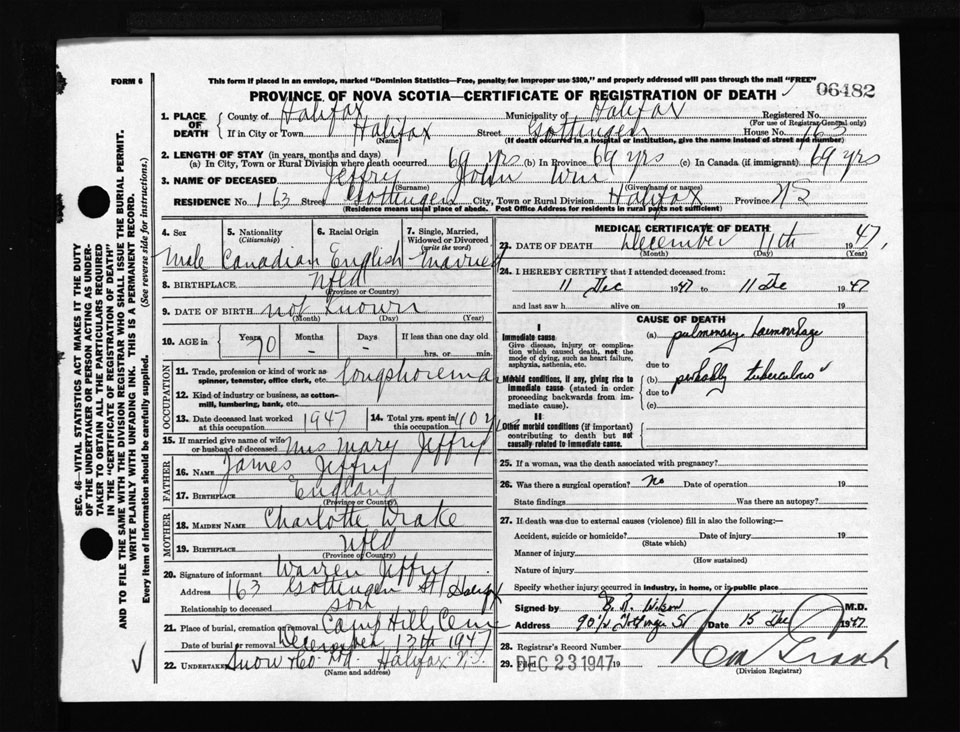 FORM 6
This form if placed in an envelope, marked "Dominion Statistics—Free, penalty for improper use $300," and properly addressed will pass through the mail "FREE"
PROVINCE OF NOVA SCOTIA—CERTIFICATE OF REGISTRATION OF DEATH
06482
1. PLACE OF DEATH
County of Halifax Municipality of Halifax Registered No.
(For use of Registrar General only)
If in City or Town Halifax Street Gottingen House No. 163
(Name) (If death occurred in a hospital or institution, give the name instead of street and number)
2. LENGTH OF STAY (in years, months and days)
(a) In City, Town or Rural Division where death occurred 69 yrs (b) In Province 69 yrs (c) In Canada (if immigrant) 69 yrs
3. NAME OF DECEASED Jeffry John Wm
(Surname) (Given name or names)
RESIDENCE No. 163 Street Gottingen City, Town or Rural Division Halifax Province NS
(Residence means usual place of abode. Post Office Address for residents in rural parts not sufficient)
4. Sex 5. Nationality (Citizenship) 6. Racial Origin 7. Single, Married, Widowed or Divorced (write the word)
Male Canadian English Married
8. BIRTHPLACE Nfld
(Province or Country)
9. DATE OF BIRTH not known
(Month) (Day) (Year)
10. AGE in Years Months Days If less than one day old
70 - - hrs. or min.
OCCUPATION
11. Trade, profession or kind of work as spinner, teamster, office clerk, etc. longshoreman
12. Kind of industry or business, as cotton-mill, lumbering, bank, etc.
13. Date deceased last worked at this occupation 1947 14. Total yrs. spent in this occupation 40 yrs
15. If married give name of wife or husband of deceased Mrs Mary Jeffry
FATHER
16. NAME James Jeffry
17. BIRTHPLACE England
(Province or Country)
MOTHER
18. MAIDEN NAME Charlotte Drake
19. BIRTHPLACE Nfld
(Province or Country)
20. Signature of informant Warren Jeffry
Address 163 Gottingen St Halifax
Relationship to deceased son
21. Place of burial, cremation or removal Camp Hill Cem
Date of burial or removal December 13th 1947
22. UNDERTAKER Snow & Co. Ltd. Halifax N.S.
(Name and address)
MEDICAL CERTIFICATE OF DEATH
23. DATE OF DEATH December 11th 1947
(Month) (Day) (Year)
24. I HEREBY CERTIFY that I attended deceased from:
11 Dec 1947 to 11 Dec 1947
and last saw h alive on 19
CAUSE OF DEATH
I
Immediate cause
Give disease, injury or complication which caused death, not the mode of dying, such as heart failure, asphyxia, asthenia, etc.
(a) pulmonary haemorrhage
due to
Morbid conditions, if any, giving rise to immediate cause (stated in order proceeding backwards from immediate cause).
(b) probably tuberculous
due to
(c)
II
Other morbid conditions (if important) contributing to death but not causally related to immediate cause.
25. If a woman, was the death associated with pregnancy?
26. Was there a surgical operation? no Date of operation 19
State findings Was there an autopsy?
27. If death was due to external causes (violence) fill in also the following:—
Accident, suicide or homicide? Date of injury 19
(State which)
Manner of injury
(How sustained)
Nature of injury
Specify whether injury occurred in industry, in home, or in public place
Signed by M.D.
Address Date 15 Dec 1947
28. Registrar's Record Number
29. Filed DEC 23 1947 19
(Division Registrar)
SEC. 46—VITAL STATISTICS ACT MAKES IT THE DUTY
OF THE UNDERTAKER OR PERSON ACTING AS UNDER-
TAKER TO OBTAIN ALL THE PARTICULARS REQUIRED
IN THE "CERTIFICATE OF REGISTRATION OF DEATH"
AND TO FILE THE SAME WITH THE DIVISION REGISTRAR WHO SHALL ISSUE THE BURIAL PERMIT.
WRITE PLAINLY WITH UNFADING INK. THIS IS A PERMANENT RECORD.
Every item of information should be carefully supplied. (See reverse side for instructions.)